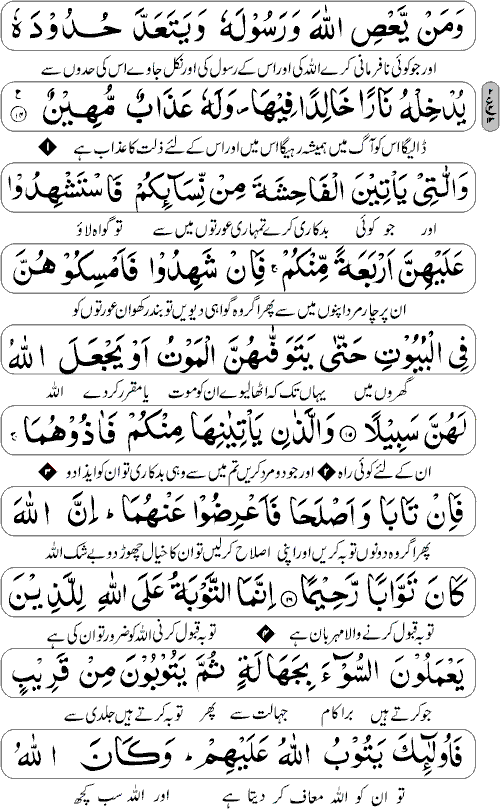 وَمَنْ يَّعْصِ اللهَ وَرَسُوْلَهٗ وَيَتَعَدَّ حُدُوْدَهٗ
اور جو کوئی نافرمانی کرے اللہ کی اور اس کے رسول کی اور نکل جاوے اس کی حدوں سے
يُدْخِلْهُ نَارًا خَالِدًا فِيْهَا ۪ وَلَهٗ عَذَابٌ مُّهِيْنٌ ۝۱۴
ڈالیگا اس کو آگ میں ہمیشہ رہیگا اس میں اور اس کے لئے ذلت کا عذاب ہے ۱
وَالّٰتِيْ يَاْتِيْنَ الْفَاحِشَةَ مِنْ نِّسَآئِكُمْ فَاسْتَشْهِدُوْا
اور جو کوئی بدکاری کرے تمہاری عورتوں میں سے تو گواہ لاؤ
عَلَيْهِنَّ اَرْبَعَةً مِّنْكُمْ ۚ فَاِنْ شَهِدُوْا فَاَمْسِكُوْهُنَّ
ان پر چار مرد اپنوں میں سے پھر اگر وہ گواہی دیویں تو بند رکھو ان عورتوں کو
فِي الْبُيُوْتِ حَتّٰى يَتَوَفّٰهُنَّ الْمَوْتُ اَوْ يَجْعَلَ اللهُ
گھروں میں یہاں تک کہ اٹھا لیوے ان کو موت یا مقرر کر دے اللہ
لَهُنَّ سَبِيْلًا ۝۱۵ وَالَّذٰنِ يَاْتِيٰنِهَا مِنْكُمْ فَاٰذُوْهُمَا ۚ
ان کے لئے کوئی راہ ۲ اور جو دو مرد کریں تم میں سے وہی بدکاری تو ان کو ایذا دو ۳
فَاِنْ تَابَا وَاَصْلَحَا فَاَعْرِضُوْا عَنْهُمَا ؕ اِنَّ اللهَ
پھر اگر وہ دونوں توبہ کریں اور اپنی اصلاح کر لیں تو ان کا خیال چھوڑ دو بے شک اللہ
كَانَ تَوَّابًا رَّحِيْمًا ۝۱۶ اِنَّمَا التَّوْبَةُ عَلَى اللهِ لِلَّذِيْنَ
توبہ قبول کرنے والا مہربان ہے ۴ توبہ قبول کرنی اللہ کو ضرور تو ان کی ہے
يَعْمَلُوْنَ السُّوْٓءَ بِجَهَالَةٍ ثُمَّ يَتُوْبُوْنَ مِنْ قَرِيْبٍ
جو کرتے ہیں برا کام جہالت سے پھر توبہ کرتے ہیں جلدی سے
فَاُولٰٓئِكَ يَتُوْبُ اللهُ عَلَيْهِمْ ؕ وَكَانَ اللهُ
تو ان کو اللہ معاف کر دیتا ہے اور اللہ سب کچھ